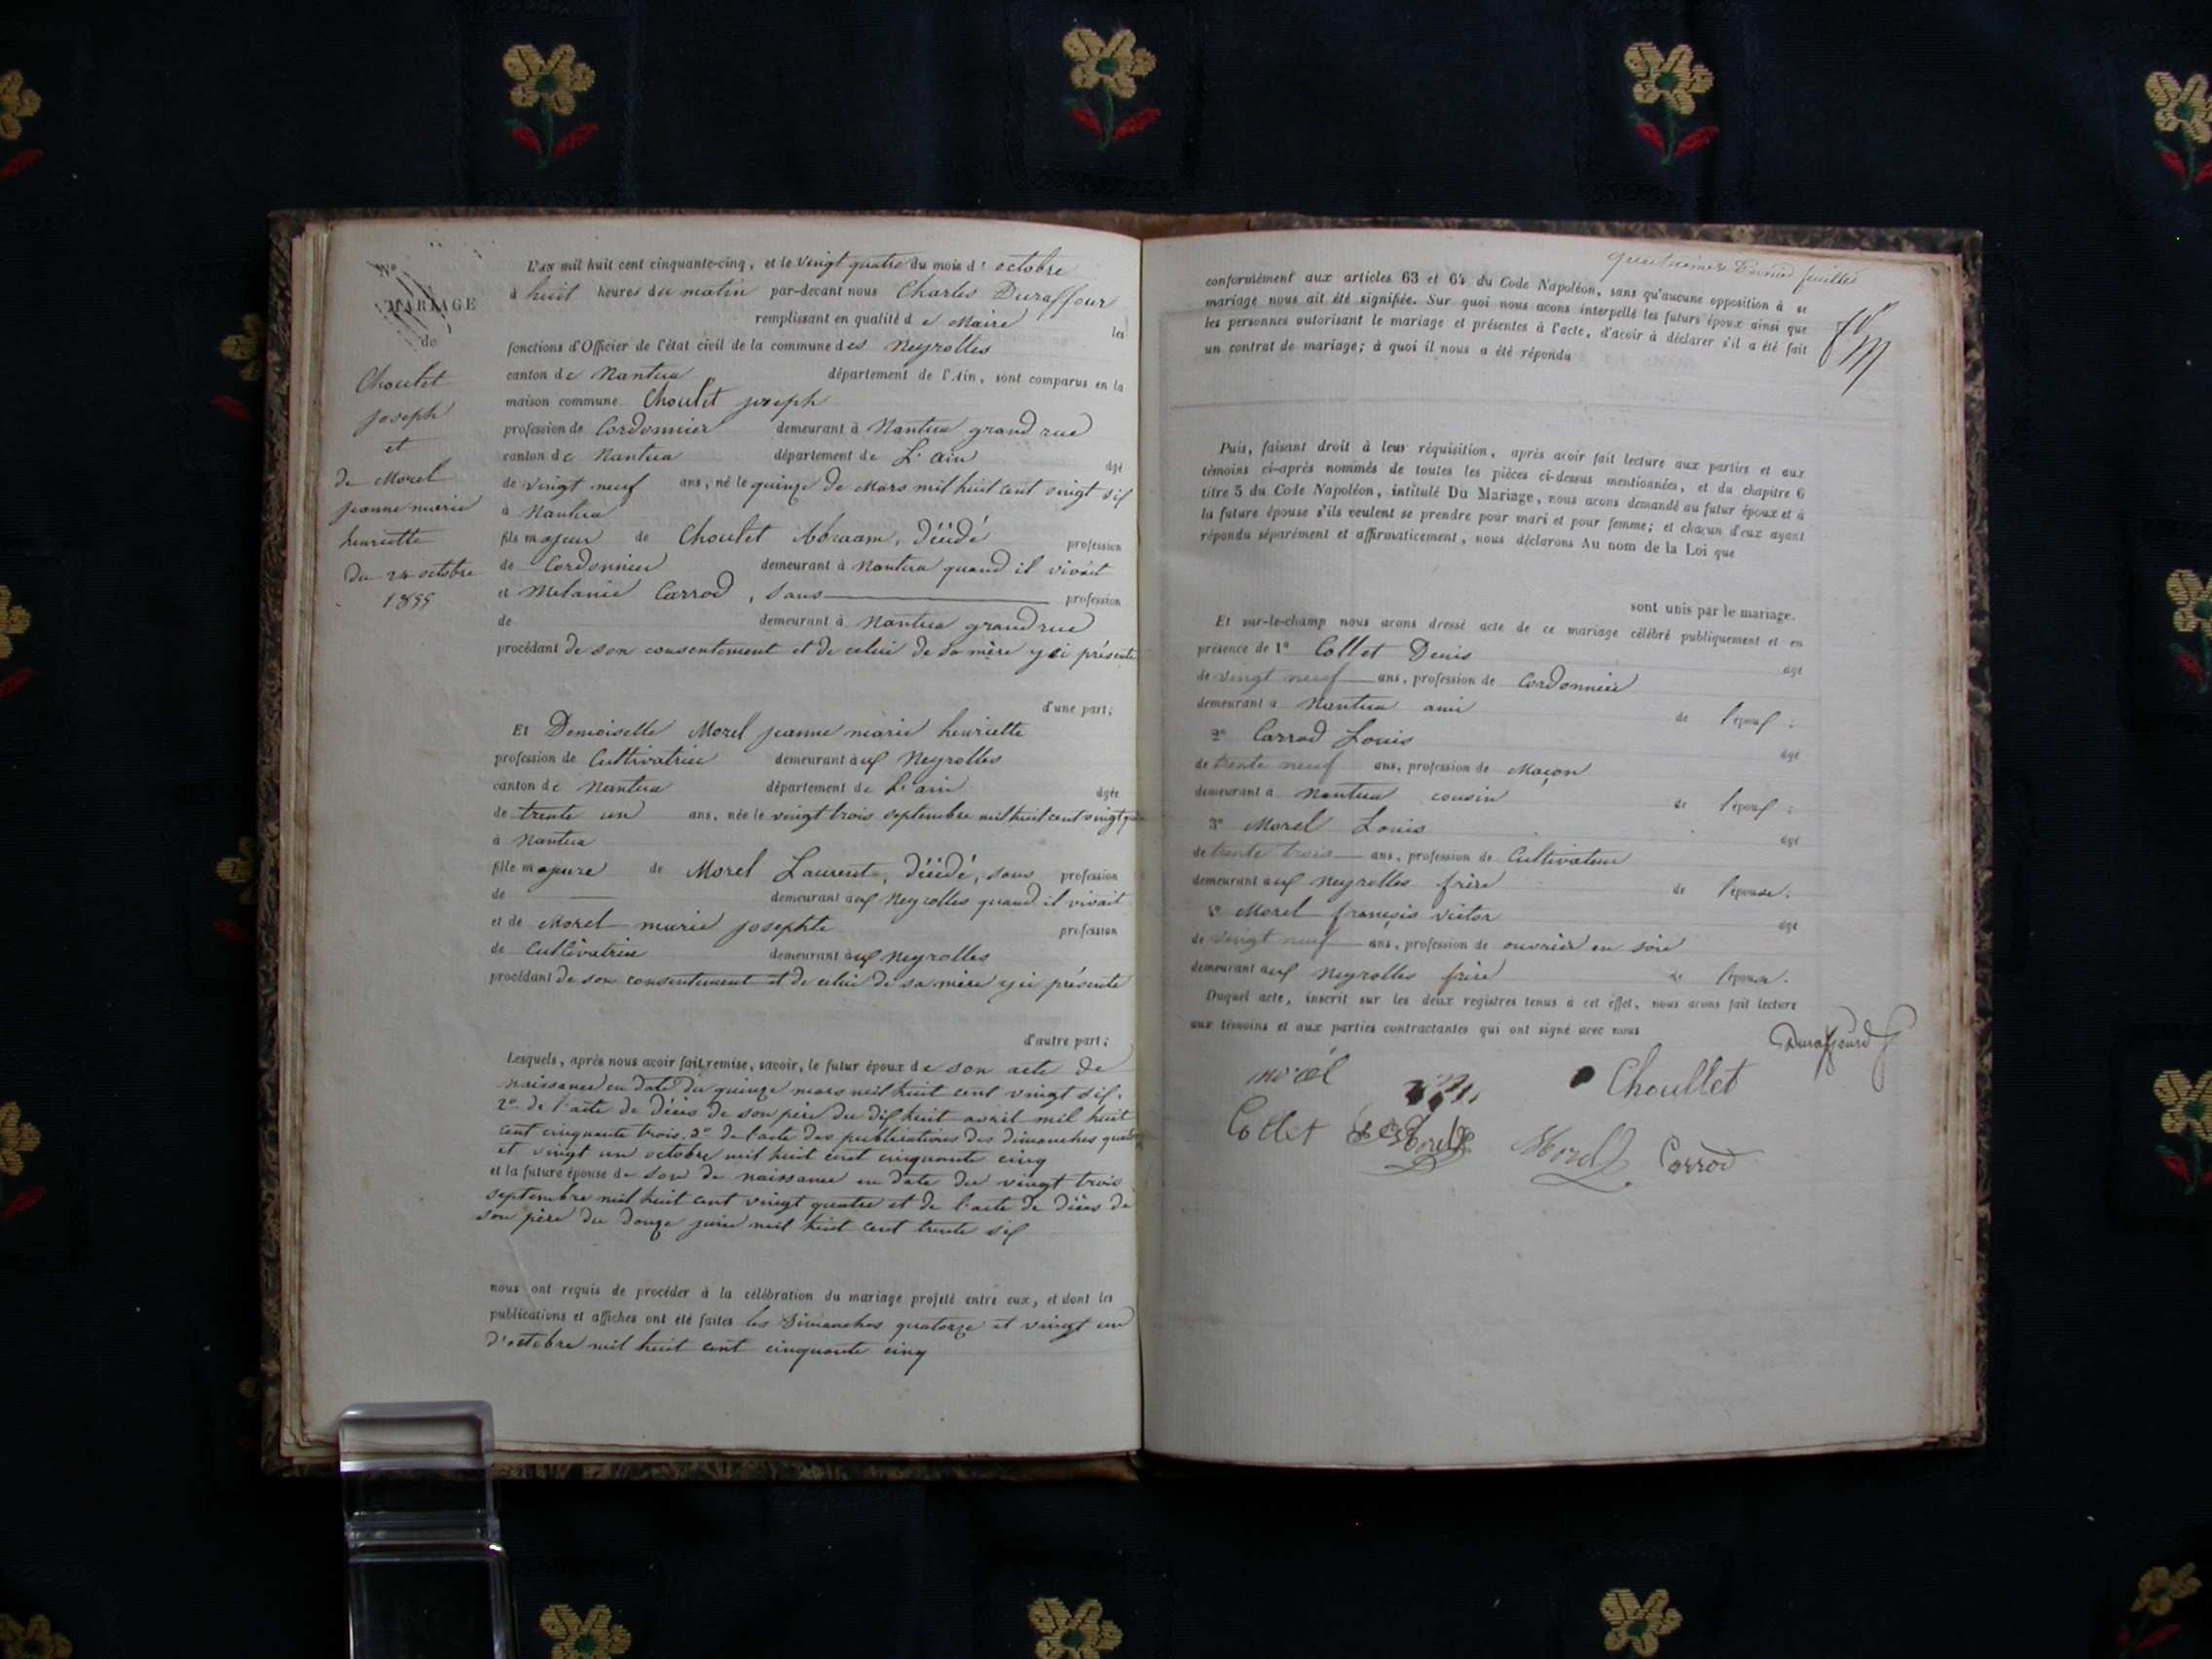 N°
MARIAGE
de
Choulet
joseph
et
de Morel
jeanne marie
henriette
du 24 octobre
1855
L'an mil huit cent cinquante-cinq, et le vingt quatre du mois d'octobre
à huit heures du matin par-devant nous Charles Duraffour
remplissant en qualité de Maire les
fonctions d'Officier de l'état civil de la commune des Neyrolles
canton de Nantua département de l'Ain, sont comparus en la
maison commune Choulet joseph
profession de Cordonnier demeurant à Nantua grand rue
canton de Nantua département de L'ain âgé
de vingt neuf ans, né le quinze de Mars mil huit cent vingt six
à Nantua
fils majeur de Choulet Abraam, décédé profession
de Cordonnier demeurant à Nantua quand il vivait
et Mélanie Carrod, sans profession
de demeurant à Nantua grand rue
procédant de son consentement et de celui de sa mère y ci présente
d'une part;
Et Demoiselle Morel jeanne marie henriette
profession de Cultivatrice demeurant aux Neyrolles
canton de Nantua département de L'ain âgée
de trente un ans, née le vingt trois septembre mil huit cent vingt
à Nantua
fille majeure de Morel Laurent, décédé, sans profession
de demeurant aux Neyrolles quand il vivait
et de Morel marie josephte profession
de Cultivatrice demeurant aux Neyrolles
procédant de son consentement et de celui de sa mère y ci présente
d'autre part;
Lesquels, après nous avoir fait remise, savoir, le futur époux de son acte de
naissance en date du quinze mars mil huit cent vingt six.
2° de l'acte de décès de son père du dix huit avril mil huit
cent cinquante trois. 3° de l'acte des publications des dimanches
et vingt un octobre mil huit cent cinquante cinq
et la future épouse de son de naissance en date du vingt trois
septembre mil huit cent vingt quatre et de l'acte de décès de
son père du douze juin mil huit cent trente six
nous ont requis de procéder à la célébration du mariage projeté entre eux, et dont les
publications et affiches ont été faites les Dimanches quatorze et vingt un
d'octobre mil huit cent cinquante cinq
feuillet
conformément aux articles 63 et 64 du Code Napoléon, sans qu'aucune opposition à se
mariage nous ait été signifiée. Sur quoi nous avons interpellé les futurs époux ainsi que
les personnes autorisant le mariage et présentes à l'acte, d'avoir à déclarer s'il a été fait
un contrat de mariage; à quoi il nous a été répondu
Puis, faisant droit à leur réquisition, après avoir fait lecture aux parties et aux
témoins ci-après nommés de toutes les pièces ci-dessus mentionnées, et du chapitre 6
titre 5 du Code Napoléon, intitulé Du Mariage, nous avons demandé au futur époux et à
la future épouse s'ils veulent se prendre pour mari et pour femme; et chacun d'eux ayant
répondu séparément et affirmativement, nous déclarons Au nom de la Loi que
sont unis par le mariage.
Et sur-le-champ nous avons dressé acte de ce mariage célébré publiquement et en
présence de 1° Collet Denis âgé
de vingt neuf ans, profession de Cordonnier
demeurant à Nantua ami de l'époux;
2° Carrod Louis âgé
de trente neuf ans, profession de Maçon
demeurant à Nantua cousin de l'époux;
3° Morel Louis âgé
de trente trois ans, profession de Cultivateur
demeurant aux Neyrolles frère de l'épouse;
4° Morel françois victor âgé
de vingt neuf ans, profession de ouvrier en soie
demeurant aux Neyrolles frère de l'épouse.
Duquel acte, inscrit sur les deux registres tenus à cet effet, nous avons fait lecture
aux témoins et aux parties contractantes qui ont signé avec nous
Duraffourd
morel
Choullet
Collet
Morel
Morel
Carrod